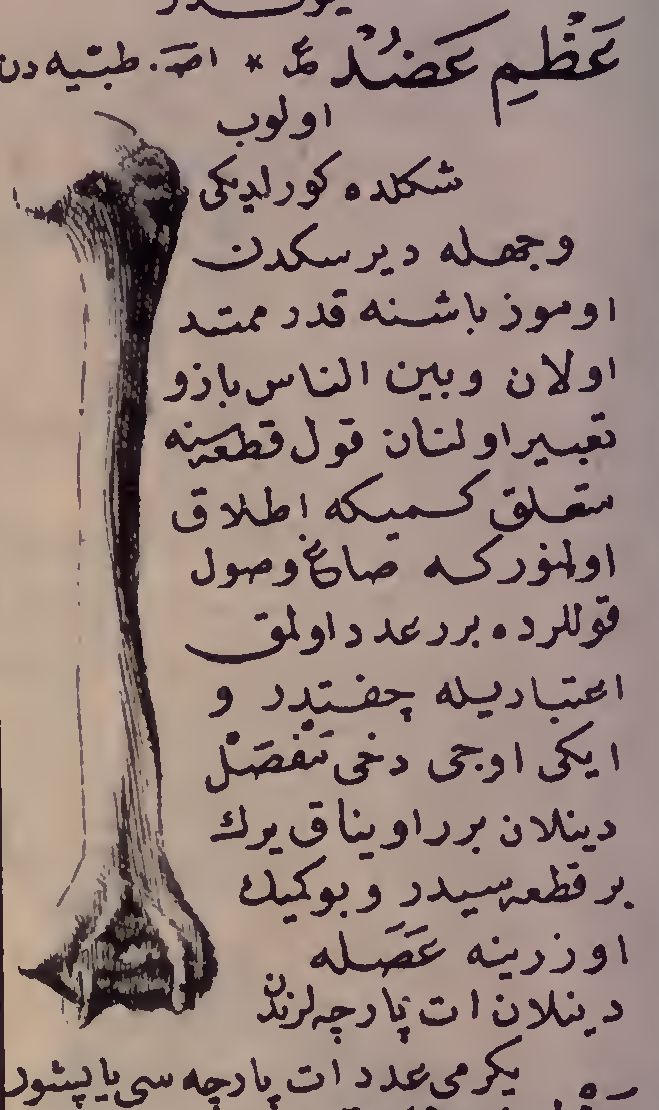 عَظْمِ عَضُدْ عَ * اصـ. طبّیه دن
اولوب
شكلده كورلدیكی
وجهله دیرسكدن
اوموز باشنه قدر ممتد
اولان وبین الناس بازو
تعبیر اولنان قول قطعه سنه
متعلق كمیكه اطلاق
اولنور كه صاغ وصول
قوللرده برر عدد اولمق
اعتباریله چفتدر و
ایكی اوجی دخی تَمَفْصَلْ
دینلان برر اویناق یرك
بر قطعه سیدر و بو كمیك
اوزرینه عَضَله
دینلان ات پارچه لرندن
یكرمی عدد ات پارچه سی یاپیشور